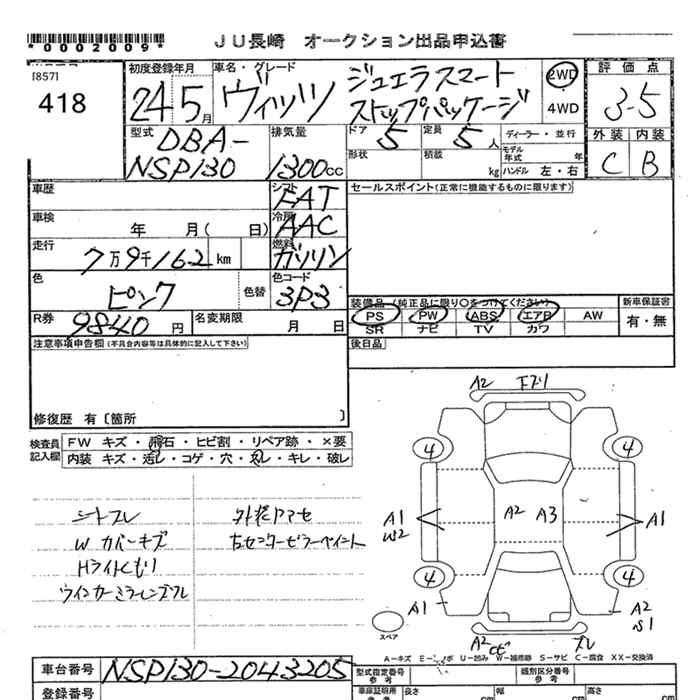 *0002009*
ＪＵ長崎 オークション出品申込書
[857]
418
初度登録年月
24年5月
車名・グレード
ヴィッツ ジュエラスマート
ストップパッケージ
2WD
4WD
評価点
3-5
外装 内装
C B
型式
DBA-
NSP130
排気量
1300cc
ドア 5
定員 5人
ディーラー・並行
形状
積載 kg
モデル年式 年
ハンドル 左・右
車歴
シフト FAT
セールスポイント(正常に機能するものに限ります)
車検 年 月( 日)
冷房 AAC
走行 7万9千162km
燃料 ガソリン
色 ピンク
色替
色コード 3P3
装備品 (純正品に限り○をつけてください)
新車保証書
PS PW ABS エアB AW
有・無
SR ナビ TV カワ
R券 9840円
名変期限 月 日
後日品
注意事項申告欄(不具合内容等は具体的に記入して下さい)
修復歴 有〔箇所 〕
検査員記入欄
FW キズ・飛石・ヒビ割・リペア跡・×要
内装 キズ・汚レ・コゲ・穴・スレ・キレ・破レ
シートスレ
外装キマセ
Wカバーキズ
右センターピラーペイント
Hライトくもり
ウインカーミラーレンズスレ
A2 下ズリ
4 4
A1 W2
A2 A3
A1
4 4
A1
A2 S1
スペア
A2
スレ
A-キズ E- U-凹み W-補修跡 S-サビ C-腐食 XX-交換済
車台番号 NSP130-2043205
型式指定番号 参考
類別区分番号 参考
登録番号
車庫証明用 参考
長さ cm
幅 cm
高さ cm